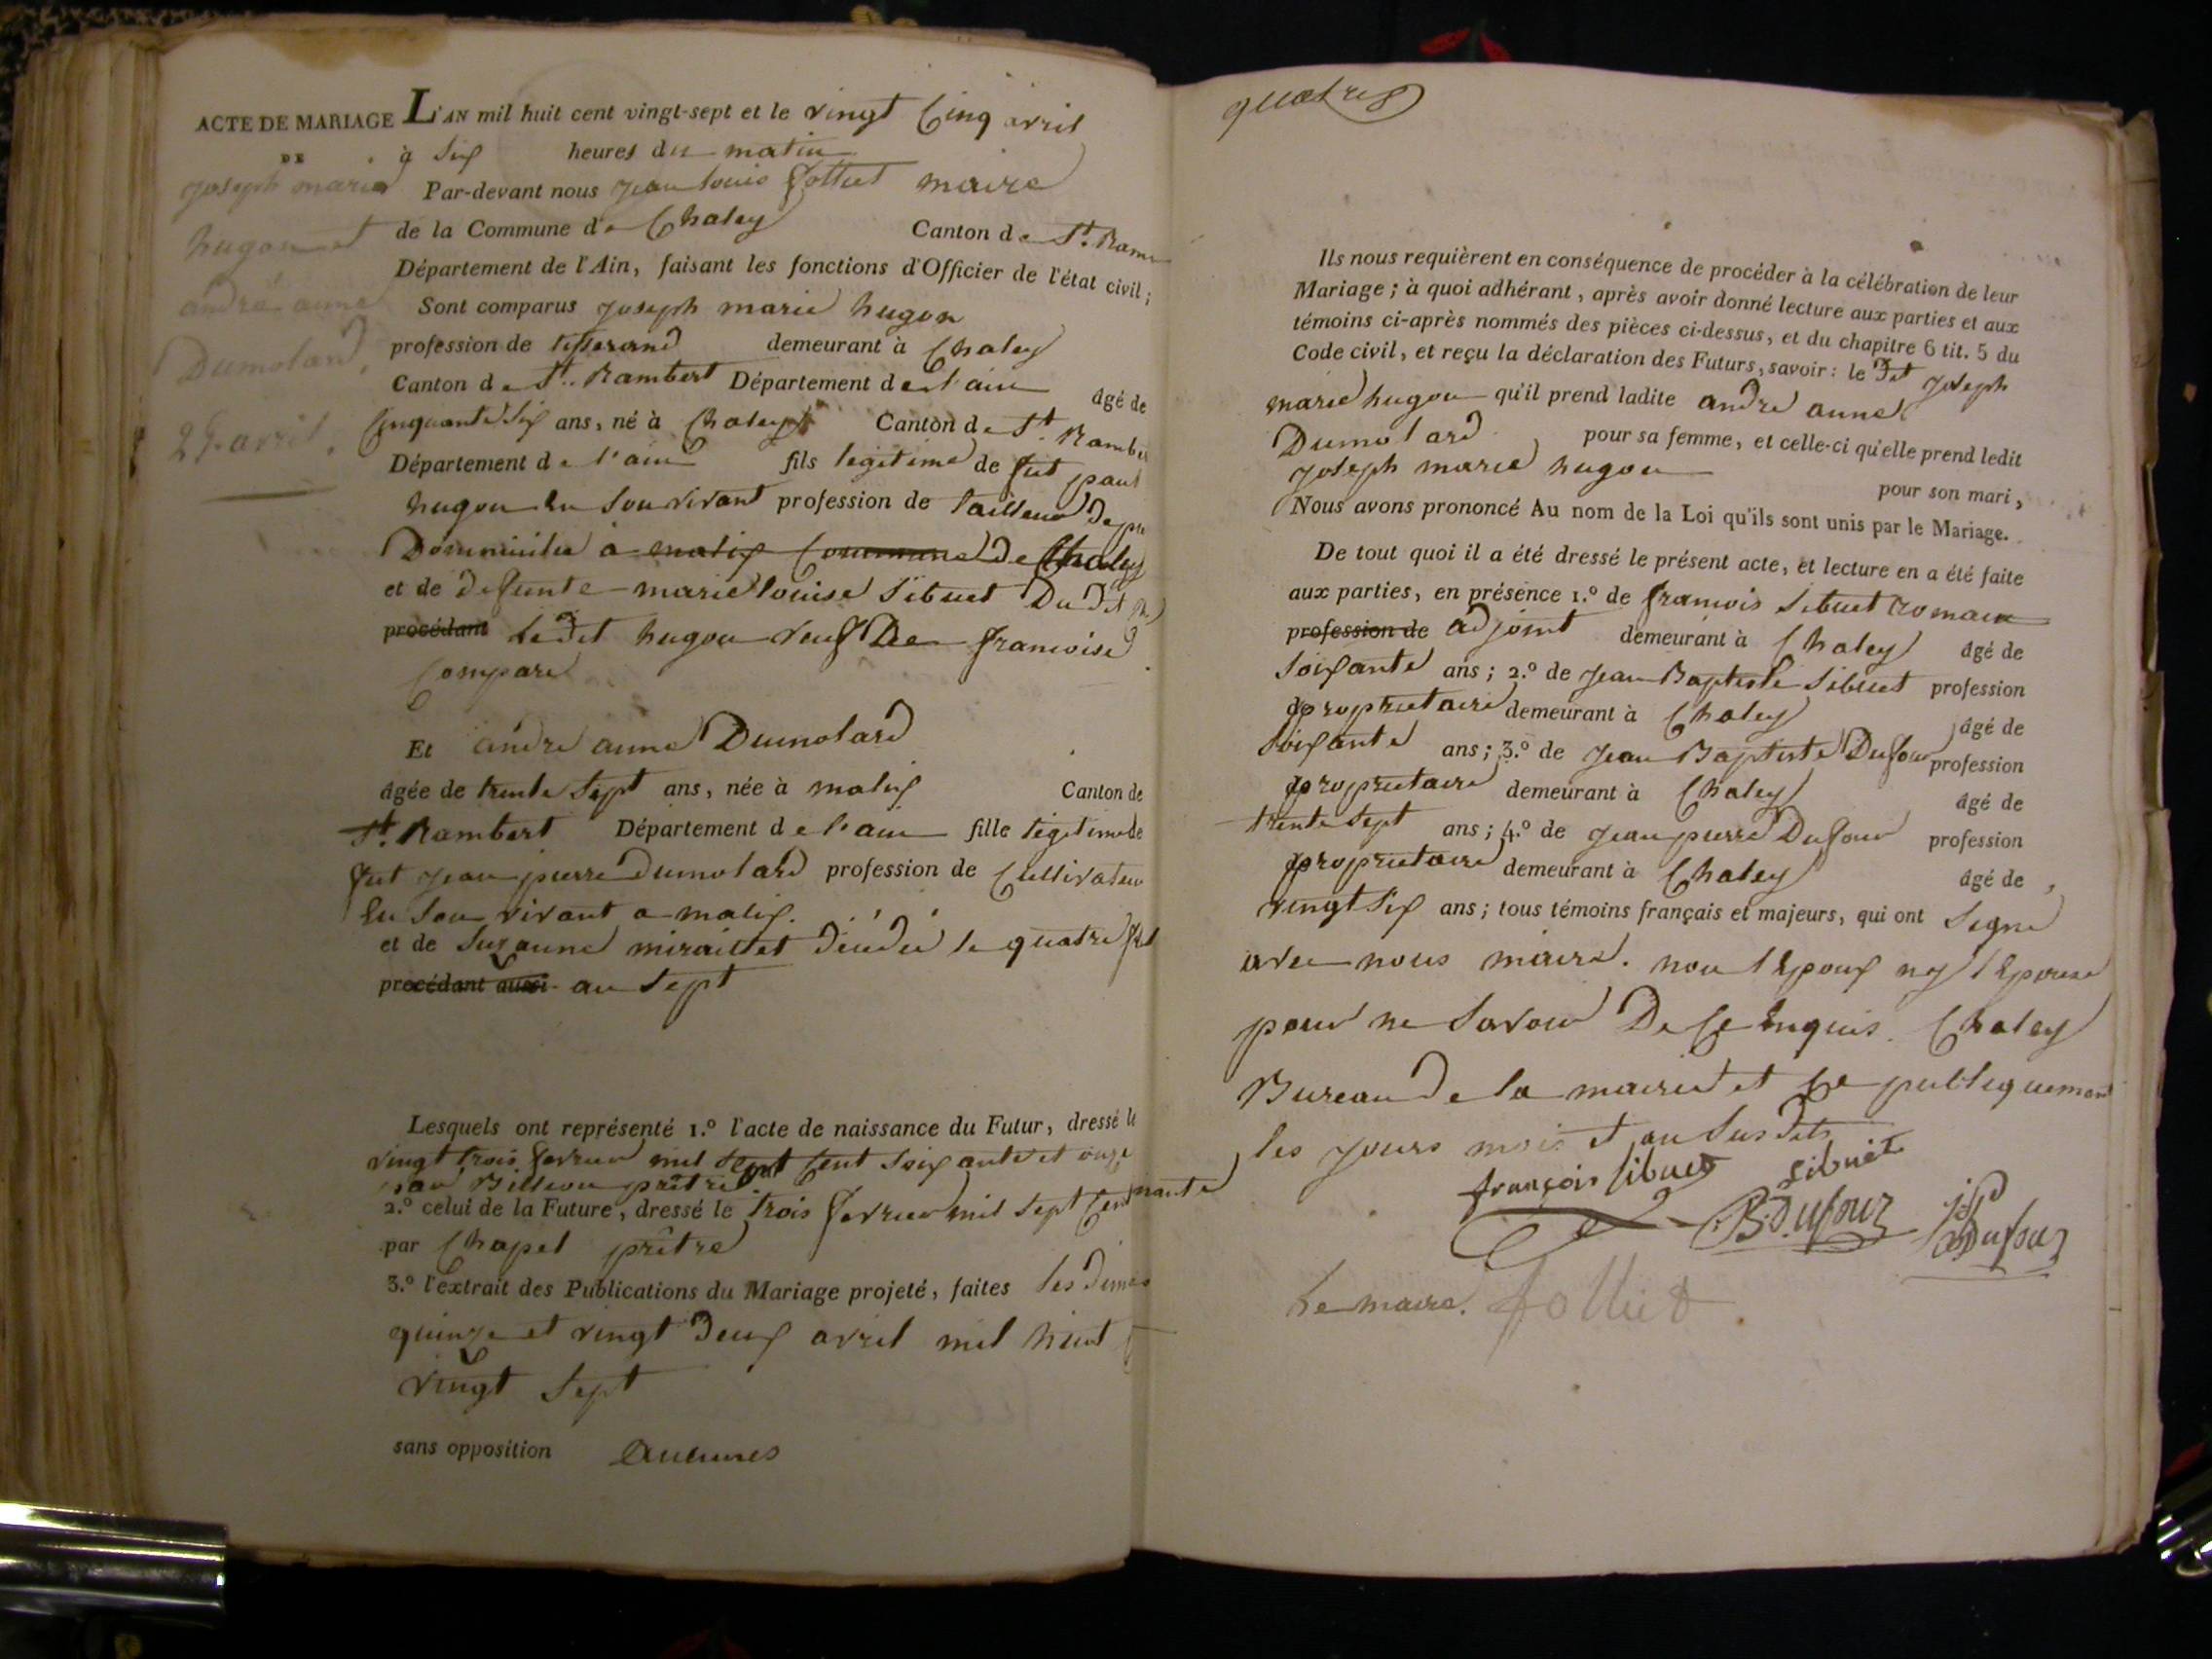 ACTE DE MARIAGE L'AN mil huit cent vingt-sept et le vingt Cinq avril
DE à six heures du matin
joseph marie
hugon et
andré anne
Dumolard,
25 avril.
Par-devant nous jean louis maire
de la Commune de Chaley Canton de St. Ram
Département de l'Ain, faisant les fonctions d'Officier de l'état civil ;
Sont comparus joseph marie hugon
profession de tisserand demeurant à Chaley
Canton de St. Rambert Département de l'ain âgé de
Cinquante six ans, né à Chaley Canton de St. Rambe
Département de l'ain fils legitime de fut paul
hugon En Son vivant profession de tailleur
Dommicilié a matix Commune de Chaley
et de Defunte marie louise Sibuet Du dit
procédant Ledit hugon veuf De francoise
Compare
Et andré anne Dumolard
âgée de trente Sept ans, née à matix Canton de
St. Rambert Département de l'ain fille legitime de
fut jean pierre Dumolard profession de Cultivateur
En Son vivant a matix.
et de Suzanne miraillet le quatre
procédant aussi an Sept
Lesquels ont représenté 1.º l'acte de naissance du Futur, dressé le
vingt trois fevrier mil Sept Cent Soixante et onze
par prêtre
2.º celui de la Future, dressé le trois fevrier mil Sept Cent nonante
par Chapel prêtre
3.º l'extrait des Publications du Mariage projeté, faites les dima
quinze et vingt deux avril mil huit
vingt Sept
sans opposition aucunes
quatre
Ils nous requièrent en conséquence de procéder à la célébration de leur
Mariage ; à quoi adhérant, après avoir donné lecture aux parties et aux
témoins ci-après nommés des pièces ci-dessus, et du chapitre 6 tit. 5 du
Code civil, et reçu la déclaration des Futurs, savoir : le dit joseph
marie hugon qu'il prend ladite andré anne
Dumolard pour sa femme, et celle-ci qu'elle prend ledit
joseph marie hugon pour son mari,
Nous avons prononcé Au nom de la Loi qu'ils sont unis par le Mariage.
De tout quoi il a été dressé le présent acte, et lecture en a été faite
aux parties, en présence 1.º de francois Sibuet romain
profession de adjoint demeurant à Chaley âgé de
Soixante ans ; 2.º de jean Baptiste Sibuet profession
de proprietaire demeurant à Chaley âgé de
Soixante ans ; 3.º de jean Baptiste Dufour profession
de proprietaire demeurant à Chaley âgé de
trente Sept ans ; 4.º de jean pierre Dufour profession
de proprietaire demeurant à Chaley âgé de
vingt Six ans ; tous témoins français et majeurs, qui ont Signé
avec nous maire. non l'Epoux ny l'Epouse
pour ne Savoir De Ce Enquis. Chaley
Bureau de la mairie et Ce publiquement
les jours mois et an Sus dits
françois Sibuet Sibuet
B. Dufour Dufour
Le maire.